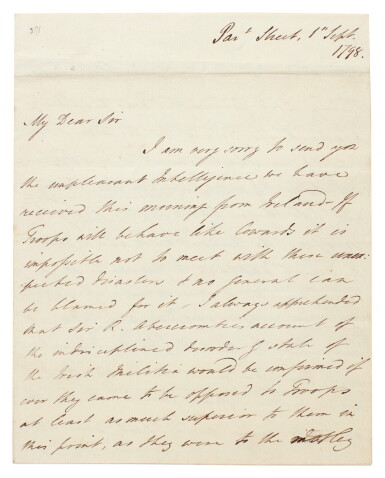 Par.t Street, 1st Sept.
1798.
My Dear Sir
I am very sorry to send you
the unpleasant Intelligence we have
received this morning from Ireland - If
Troops will behave like Cowards it is
impossible not to meet with these unex-
pected disasters & no General can
be blamed for it - I always apprehended
that Sir R. Abercrombie's account of
the indisciplined disorderly state of
the Irish Militia would be confirmed if
ever they came to be opposed to Troops
at least as much superior to them in
this point, as they were to the motley